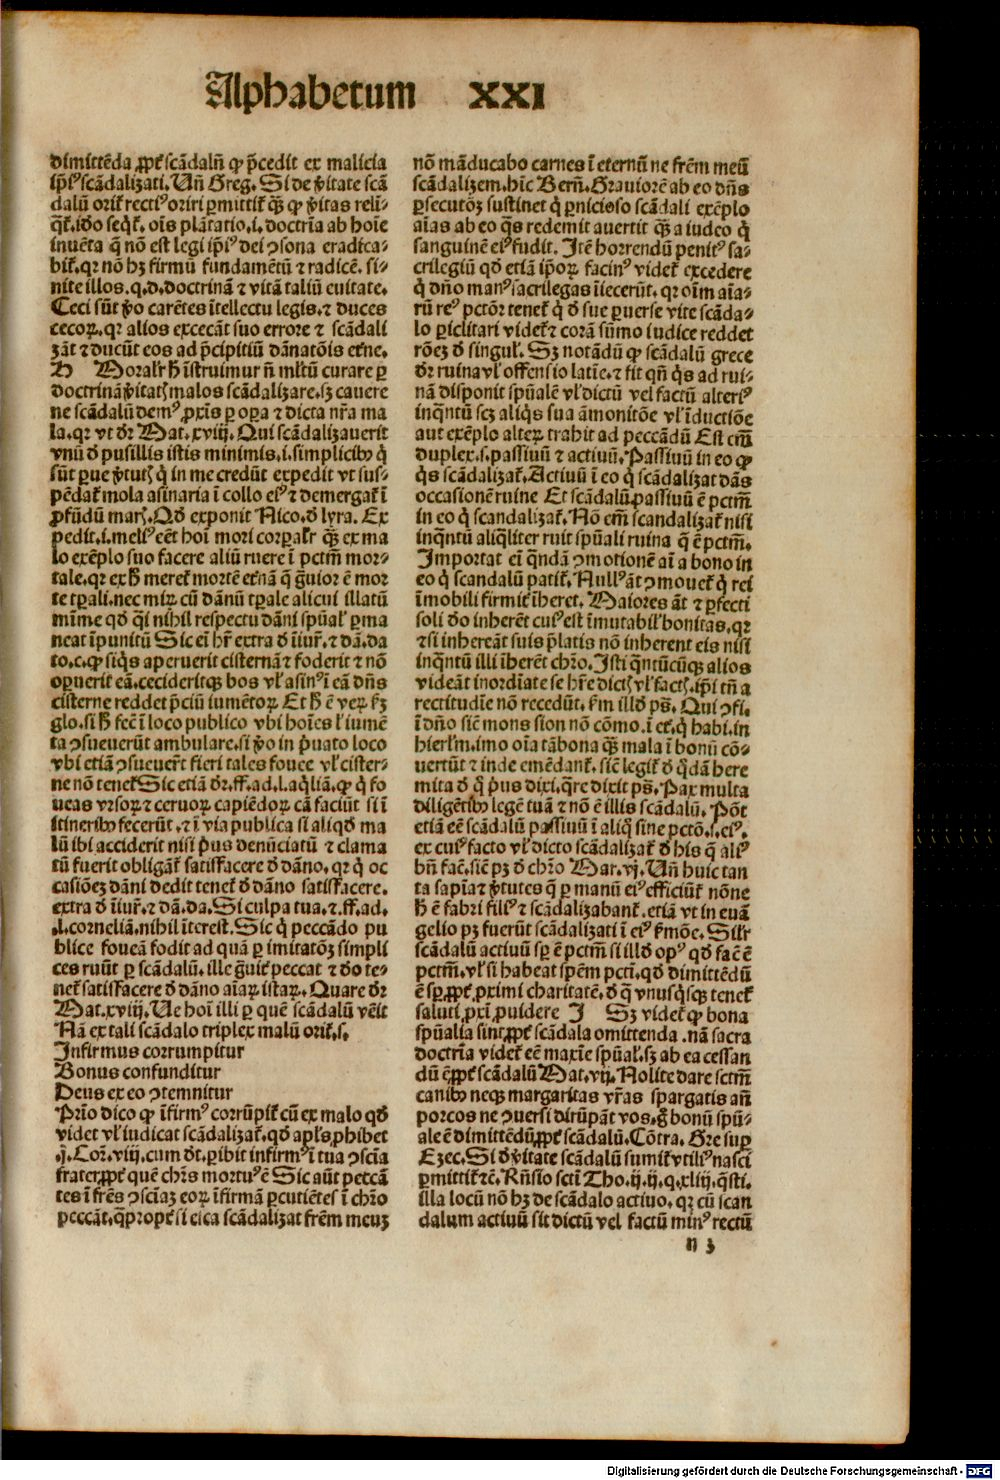 Alphabetum XXI
dimittēda ꝓpt̄ scādalū qꝫ p̄cedit ex malicia
ip̄iꝰ scādalizati. Un̄ Greg. Si de v̓itate scā
dalū orit̄ rectiꝰ oriri ꝑmittit̄ qꝫ̄ qꝫ v̓itas reli-
q̄t̄. iđo seq̄t̄. oīs plātatio .i. doctrīa ab hoīe
inuēta q̄ nō est legi ip̄iꝰ dei ꝯsona eradica-
bit̄. qꝛ nō hꝫ firmū fundamētū ⁊ radicē. si-
nite illos .q.d. doctrinā ⁊ vitā taliū euitate.
Ceci sūt v̓o carētes ītellectu legis. ⁊ duces
cecoꝝ. qꝛ alios excecāt suo errore ⁊ scādali
zāt ⁊ ducūt eos ad p̄cipitiū dānatōis et̄ne.
H Moralr̄ h̄ īstruimur ꝙ̄ mltū curare ꝑ
doctrinā v̓itatꝭ malos scādalizare. sꝫ cauere
ne scādalū demꝰ ꝓxīs ꝑ oꝑa ⁊ dicta nr̄a ma
la. qꝛ vt dr̄ Mat. xviij. Qui scādalizauerit
vnū đ pusillis istis minimis .i. simplicibꝰ q̓
sūt ꝑue v̓tutꝭ q̓ in me credūt expedit vt sus-
pēdat̄ mola asinaria ī collo eiꝰ ⁊ demergat̄ ī
ꝓfūdū marꝭ. Qđ exponit Nico. đ lyra. Ex
pedit .i. meliꝰ eēt hoī mori corꝑalr̄ qꝫ̄ ex ma
lo exēplo suo facere aliū ruere ī pctm̄ mor-
tale. qꝛ ex h̄ meret̄ mortē et̄nā q̄ g̓uior ē mor
te tꝑali. nec miꝝ cū dānū tꝑale alicui illatū
mīme qđ q̓i nihil respectu dāni spūal̄ ꝑma
neat īpunitū Sic eī hr̄ extra đ iiur̄. ⁊ dā. da
to. c. qꝫ siq̓s aperuerit cisternā ⁊ foderit ⁊ nō
oꝑuerit eā. cecideritqꝫ bos vl̓ asinꝰ ī eā dn̄s
cisterne reddet p̄ciū iumētoꝝ Et h̄ ē veꝝ ẜꝫ
glo. si h̄ fec̄ ī loco publico vbi hoīes l̓ iumē
ta ꝯsueuerūt ambulare. si v̓o in p̓uato loco
vbi etiā ꝯsueuer̄t fieri tales fouee vl̓ cister-
ne nō tenet̄ Sic etiā dr̄. ff. ad .l. aq̓liā. qꝫ q̓ fo
ueas vrsoꝝ ⁊ ceruoꝝ capiēdoꝝ cā faciūt si ī
itineribꝰ fecerūt. ⁊ ī via publica si aliqđ ma
lū ibi acciderit nisi p̓us denūciatū ⁊ clama
tū fuerit obligāt̄ satisfacere đ dāno. qꝛ q̓ oc
casiōeꝫ dāni dedit tenet̄ đ dāno satisfacere.
extra đ iiur̄. ⁊ dā. da. Si culpa tua. ⁊ .ff. ad.
.l. corneliā. nihil īterest. Sic q̓ peccādo pu
blice foueā fodit ad quā ꝑ imitatōꝫ simpli
ces ruūt ꝑ scādalū. ille g̓uiꝰ peccat ⁊ iđo te-
net̄ satisfacere đ dāno aīaꝝ istaꝝ. Quare dr̄
Mat. xviij. Ue hoī illi ꝑ quē scādalū vēit
Nā ex tali scādalo triplex malū orit̄ .s.
Infirmus corrumpitur
Bonus confunditur
Deus ex eo ꝯtemnitur
Prīo dico qꝫ īfirmꝰ corrūpit̄ cū ex malo qđ
videt vl̓ iudicat scādalizat̄. qđ apl̓s ꝓhibet
.j. Cor. viij. cum dt̄. ꝑibit infirmꝰ ī tua ꝯscīa
frater ꝓpt̄ quē chr̄s mortuꝰ ē Sic aūt peccā
tes ī fr̄es ⁊ ꝯscīaꝫ eoꝝ īfirmā ꝑcutiētes ī chr̄o
peccāt. q̄ꝓpt̄ si esca scādalizat fr̄em meuꝫ
nō māducabo carnes ī eternū ne fr̄em meū
scādalizem. hīc Bern̄. Grauiorē ab eo dn̄s
ꝑsecutōꝫ sustinet q̓ ꝑnicioso scādali exēplo
aīas ab eo q̄s redemit auertit qꝫ̄ a iudeo q̓
sanguinē eiꝰ fudit. Itē horrendū penitꝰ sa-
crilegiū qđ etiā ip̄oꝝ facinꝰ videt̄ excedere
q̓ dn̄o manꝰ sacrilegas iiecerūt. qꝛ oīm aīa-
rū reꝰ pctōr tenet̄ q̓ đ sue ꝑuerse vite scāda-
lo ꝑiclitari videt̄ ⁊ corā sūmo iudice reddet
rōeꝫ đ singul̄. Sꝫ notādū qꝫ scādalū grece
dr̄ ruina vl̓ offensio latīe. ⁊ fit qn̄ q̓s ad rui-
nā disponit spūalē vl̓ dictū vel factū alteriꝰ
inq̄ntū scꝫ aliq̓s sua āmonitōe vl̓ īductiōe
aut exēplo alteꝝ trahit ad peccādū Est em̄
duplex .s. passiuū ⁊ actiuū. Passiuū in eo qꝫ
q̓s scādalizat̄. Actiuū ī eo q̓ scādalizat dās
occasionē ruine Et scādalū passiuū ē pctm̄
in eo q̓ scandalizat̄. Nō em̄ scandalizat̄ nisi
inq̄ntū aliq̓liter ruit spūali ruina q̄ ē pctm̄.
Importat eī q̄ndā ꝯmotionē aī a bono in
eo q̓ scandalū patit̄. Nullꝰ āt ꝯmouet̄ q̓ rei
īmobili firmit̄ īheret. Maiores āt ⁊ ꝑfecti
soli đo inherēt cuiꝰ est īmutabil̓ bonitas. qꝛ
⁊ si inhereāt suis p̄latis nō inherent eis nisi
inq̄ntū illi īherēt chr̄o. Isti q̄ntūcūqꝫ alios
videāt inordīate se hr̄e dictꝭ vl̓ factꝭ. ip̄i tn̄ a
rectitudīe nō recedūt. ẜm illđ ps̄. Qui ꝯfi.
ī dn̄o sic̄ mons sion nō cōmo. ī et̄. q̓ habi. in
hierl̄m. imo oīa tā bona qꝫ̄ mala ī bonū cō-
uertūt ⁊ inde emēdant̄. sic̄ legit̄ đ q̄dā here
mita đ q̓ p̓us dixi. q̄re dixit ps̄. Pax multa
diligētibꝰ legē tuā ⁊ nō ē illis scādalū. Pōt
etiā eē scādalū passiuū ī aliq̓ sine pctō. s. eiꝰ.
ex cuiꝰ facto vl̓ dicto scādalizat̄ đ his q̄ aliꝰ
bn̄ fac̄. sic̄ pꝫ đ chr̄o Mar. vj. Un̄ huic tan
ta sapīa ⁊ v̓tutes q̄ ꝑ manū eiꝰ efficiūt̄ nōne
h̄ ē fabri filiꝰ ⁊ scādalizabant̄. etiā vt in euā
gelio pꝫ fuerūt scādalizati ī eiꝰ ẜmōe. Sil̓r
scādalū actiuū sꝑ ē pctm̄ si illđ opꝰ qđ fac̄ ē
pctm̄. vl̓ si habeat spēm pctī. qđ dimittēdū
ē sꝑ ꝓpt̄ ꝓximi charitatē. đ q̄ vnusq̓sqꝫ tenet̄
saluti ꝓxī ꝓuidere I Sꝫ videt̄ qꝫ bona
spūalia sint ꝓpt̄ scādala omittenda. nā sacra
doctrīa videt̄ eē maxīe spūal̄. sꝫ ab ea cessan
dū ē ꝓpt̄ scādalū Mat. vij. Nolite dare sctm̄
canibꝰ neqꝫ margaritas vr̄as spargatis an̄
porcos ne ꝯuersi dirūpāt vos. g̓ bonū spū-
ale ē dimittēdū ꝓpt̄ scādalū. Cōtra. Gre suꝑ
Ezec. Si đ v̓itate scādalū sumit̄ vtiliꝰ nasci
ꝑmittit̄ ⁊c̄. Rn̄sio sctī Tho. ij. ij. q. xliij. q̄sti.
illa locū nō hꝫ de scādalo actiuo. qꝛ cū scan
dalum actiuū sit dictū vel factū minꝰ rectū
n 3
Digitalisierung gefördert durch die Deutsche Forschungsgemeinschaft - DFG